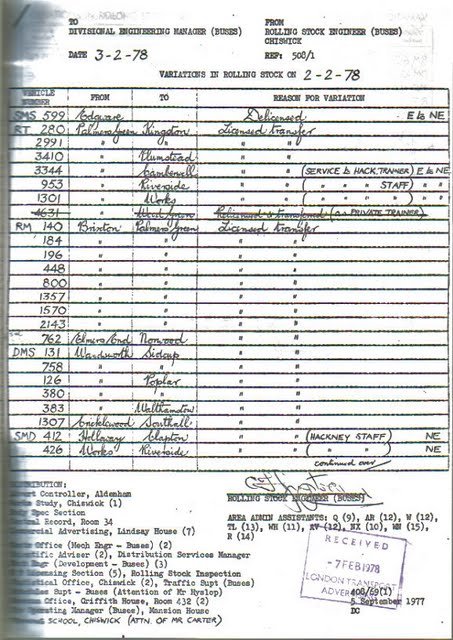 TO FROM
DIVISIONAL ENGINEERING MANAGER (BUSES) ROLLING STOCK ENGINEER (BUSES)
CHISWICK
DATE 3-2-78 REF: 508/1
VARIATIONS IN ROLLING STOCK ON 2-2-78
VEHICLE NUMBER FROM TO REASON FOR VARIATION
SMS 599 Edgware Delicensed E to NE
RT 280 Palmers Green Kingston Licensed transfer
2991 " " " "
3410 " Plumstead " "
3344 " Camberwell " " (SERVICE to HACK. TRAINER) E to NE
953 " Riverside " " ( " " STAFF) " "
1301 " Works " " ( " " " ) " "
4631 " Wood Green Relicensed & transferred (as PRIVATE TRAINER)
RM 140 Brixton Palmers Green Licensed transfer
184 " " " "
196 " " " "
448 " " " "
800 " " " "
1357 " " " "
1570 " " " "
2143 " " " "
762 Elmers End Norwood " "
DMS 131 Wandsworth Sidcup " "
758 " " " "
126 " Poplar " "
380 " " " "
383 " Walthamstow " "
1307 Cricklewood Southall " "
SMD 412 Holloway Clapton " " (HACKNEY STAFF) NE
426 Works Riverside " " ( " " ) NE
continued over
DISTRIBUTION:
Controller, Aldenham
Study, Chiswick (1)
Spec Section
Record, Room 34
Commercial Advertising, Lindsay House (7)
Office (Mech Engr - Buses) (2)
Adviser (2), Distribution Services Manager
Engr (Development - Buses) (3)
Licensing Section (5), Rolling Stock Inspection
Office, Chiswick (2), Traffic Supt (Buses)
Supt - Buses (Attention of Mr Hyslop)
Office, Griffith House, Room 432 (2)
Operating Manager (Buses), Mansion House
SCHOOL, CHISWICK (ATTN. OF MR CARTER)
ROLLING STOCK ENGINEER (BUSES)
AREA ADMIN ASSISTANTS: Q (9), AR (12), W (12),
TL (13), WH (11), AV (12), NX (10), WN (15),
R (14)
RECEIVED
-7 FEB 1978
LONDON TRANSPORT
408/69(1)
5 September 1977
DC